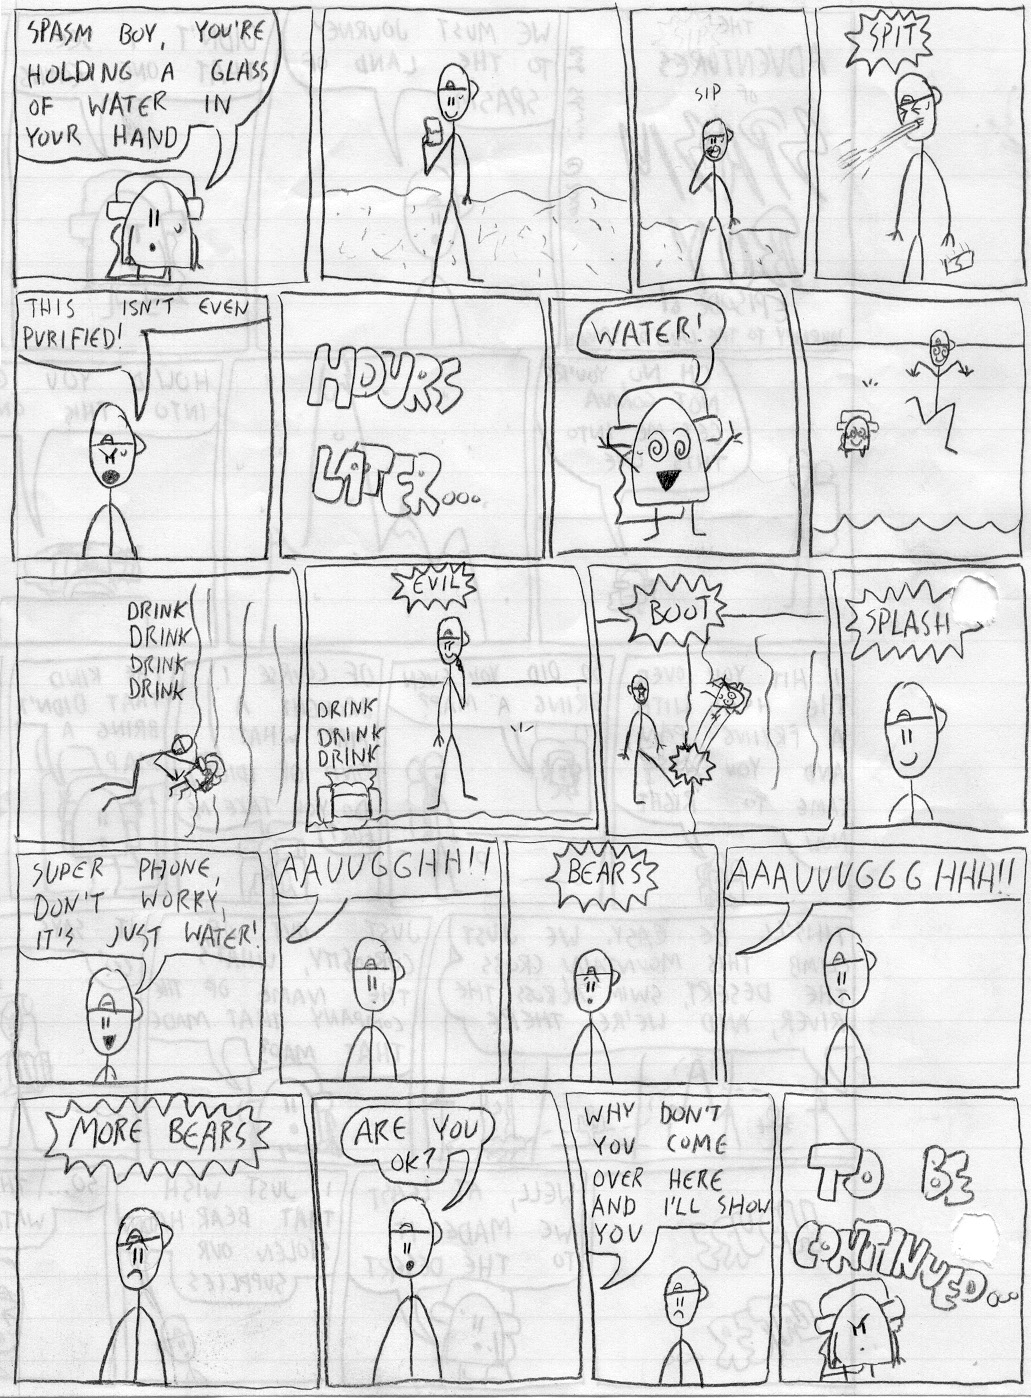 SPASM BOY, YOU'RE
HOLDING A GLASS
OF WATER IN
YOUR HAND
SIP
SPIT
THIS ISN'T EVEN
PURIFIED!
HOURS
LATER...
WATER!
DRINK
DRINK
DRINK
DRINK
EVIL
DRINK
DRINK
DRINK
BOOT
SPLASH
SUPER PHONE,
DON'T WORRY,
IT'S JUST WATER!
AAUUGGHH!!
BEARS
AAAUUUGGGHHH!!
MORE BEARS
ARE YOU
OK?
WHY DON'T
YOU COME
OVER HERE
AND I'LL SHOW
YOU
TO BE
CONTINUED...